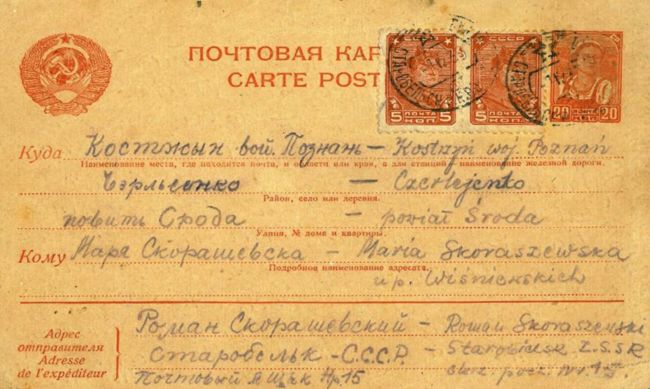 ПОЧТОВАЯ
CARTE POST
5 КОП 5
5 КОП 5
20 20
Куда Костжын вой. Познань – Kostrzyń woj. Poznań
Наименование места, где находится почта, и области или края, а для станций наименование железной дороги.
– Czerlejenko
Район, село или деревня.
повить Срода – powiat Środa
Улица, № дома и квартиры.
Кому Мария Скорашевска – Maria Skoraszewska
Подробное наименование адресата.
u p. Wiśniewskich
Адрес
отправителя
Adresse
de l'expéditeur
Роман Скорашевский – Roman Skoraszewski
Старобельк – С.С.С.Р. – Starobielsk Z.S.S.R
Почтовый Ящык Нр 15